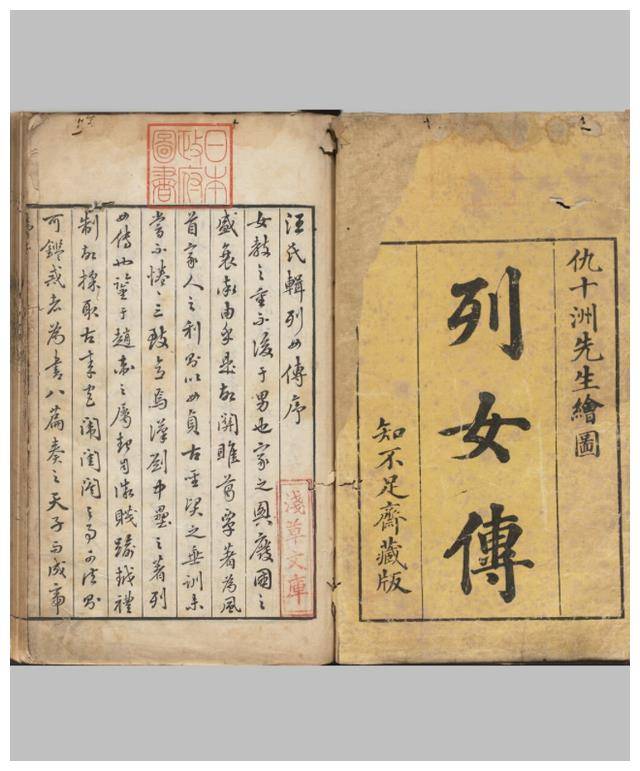 仇十洲先生繪圖
列女傳
知不足齋藏版
日本政府圖書
淺草文庫
汪氏輯列女傳序
女教之重不後于男也家之興廢國之
盛衰率由乎是故關雎葛覃著為風
首家人之利則以女貞古聖賢之垂訓未
嘗不惓〻三致意焉漢劉中壘之著列
女傳也鑒于趙衛之屬起自微賤踰越禮
制故採取古來宮闈閨之事可法則
可鑑戒者為書八篇奏之天子而成帝